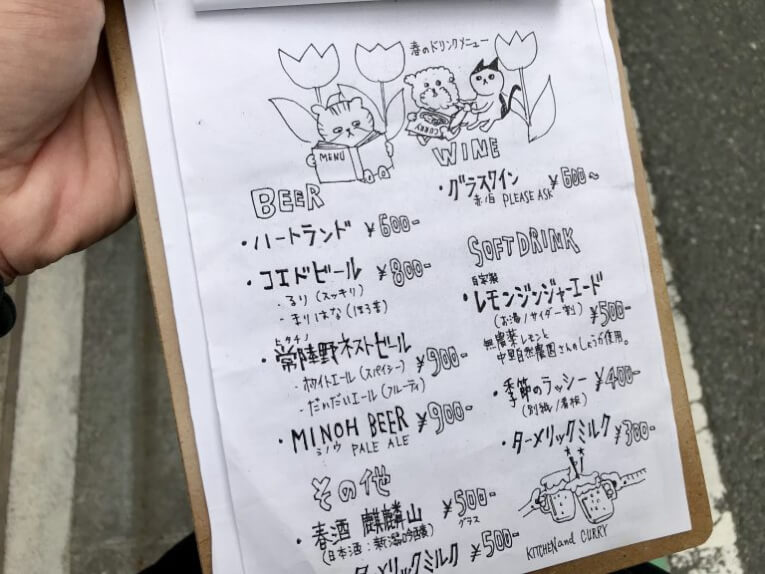 春のドリンクメニュー
MENU
CURRY
BEER
・ハートランド ¥600-
・コエドビール ¥800-
・るり(スッキリ)
・まりはな(ほろ苦)
ヒタチノ
・常陸野ネストビール ¥900-
・ホワイトエール(スパイシー)
・だいだいエール(フルーティ)
・MINOH BEER ¥900-
ミノウ PALE ALE
その他
・春酒 麒麟山 ¥500-
グラス
(日本酒:新潟吟醸)
ターメリックミルク ¥500-
WINE
・グラスワイン ¥600~
PLEASE ASK
SOFT DRINK
自家製
・レモンジンジャーエード
(お湯/サイダー割) ¥500-
無農薬レモンと
中里自然農園さんのしょうが使用。
・季節のラッシー ¥400-
(別紙/看板)
・ターメリックミルク ¥300-
KITCHEN and CURRY